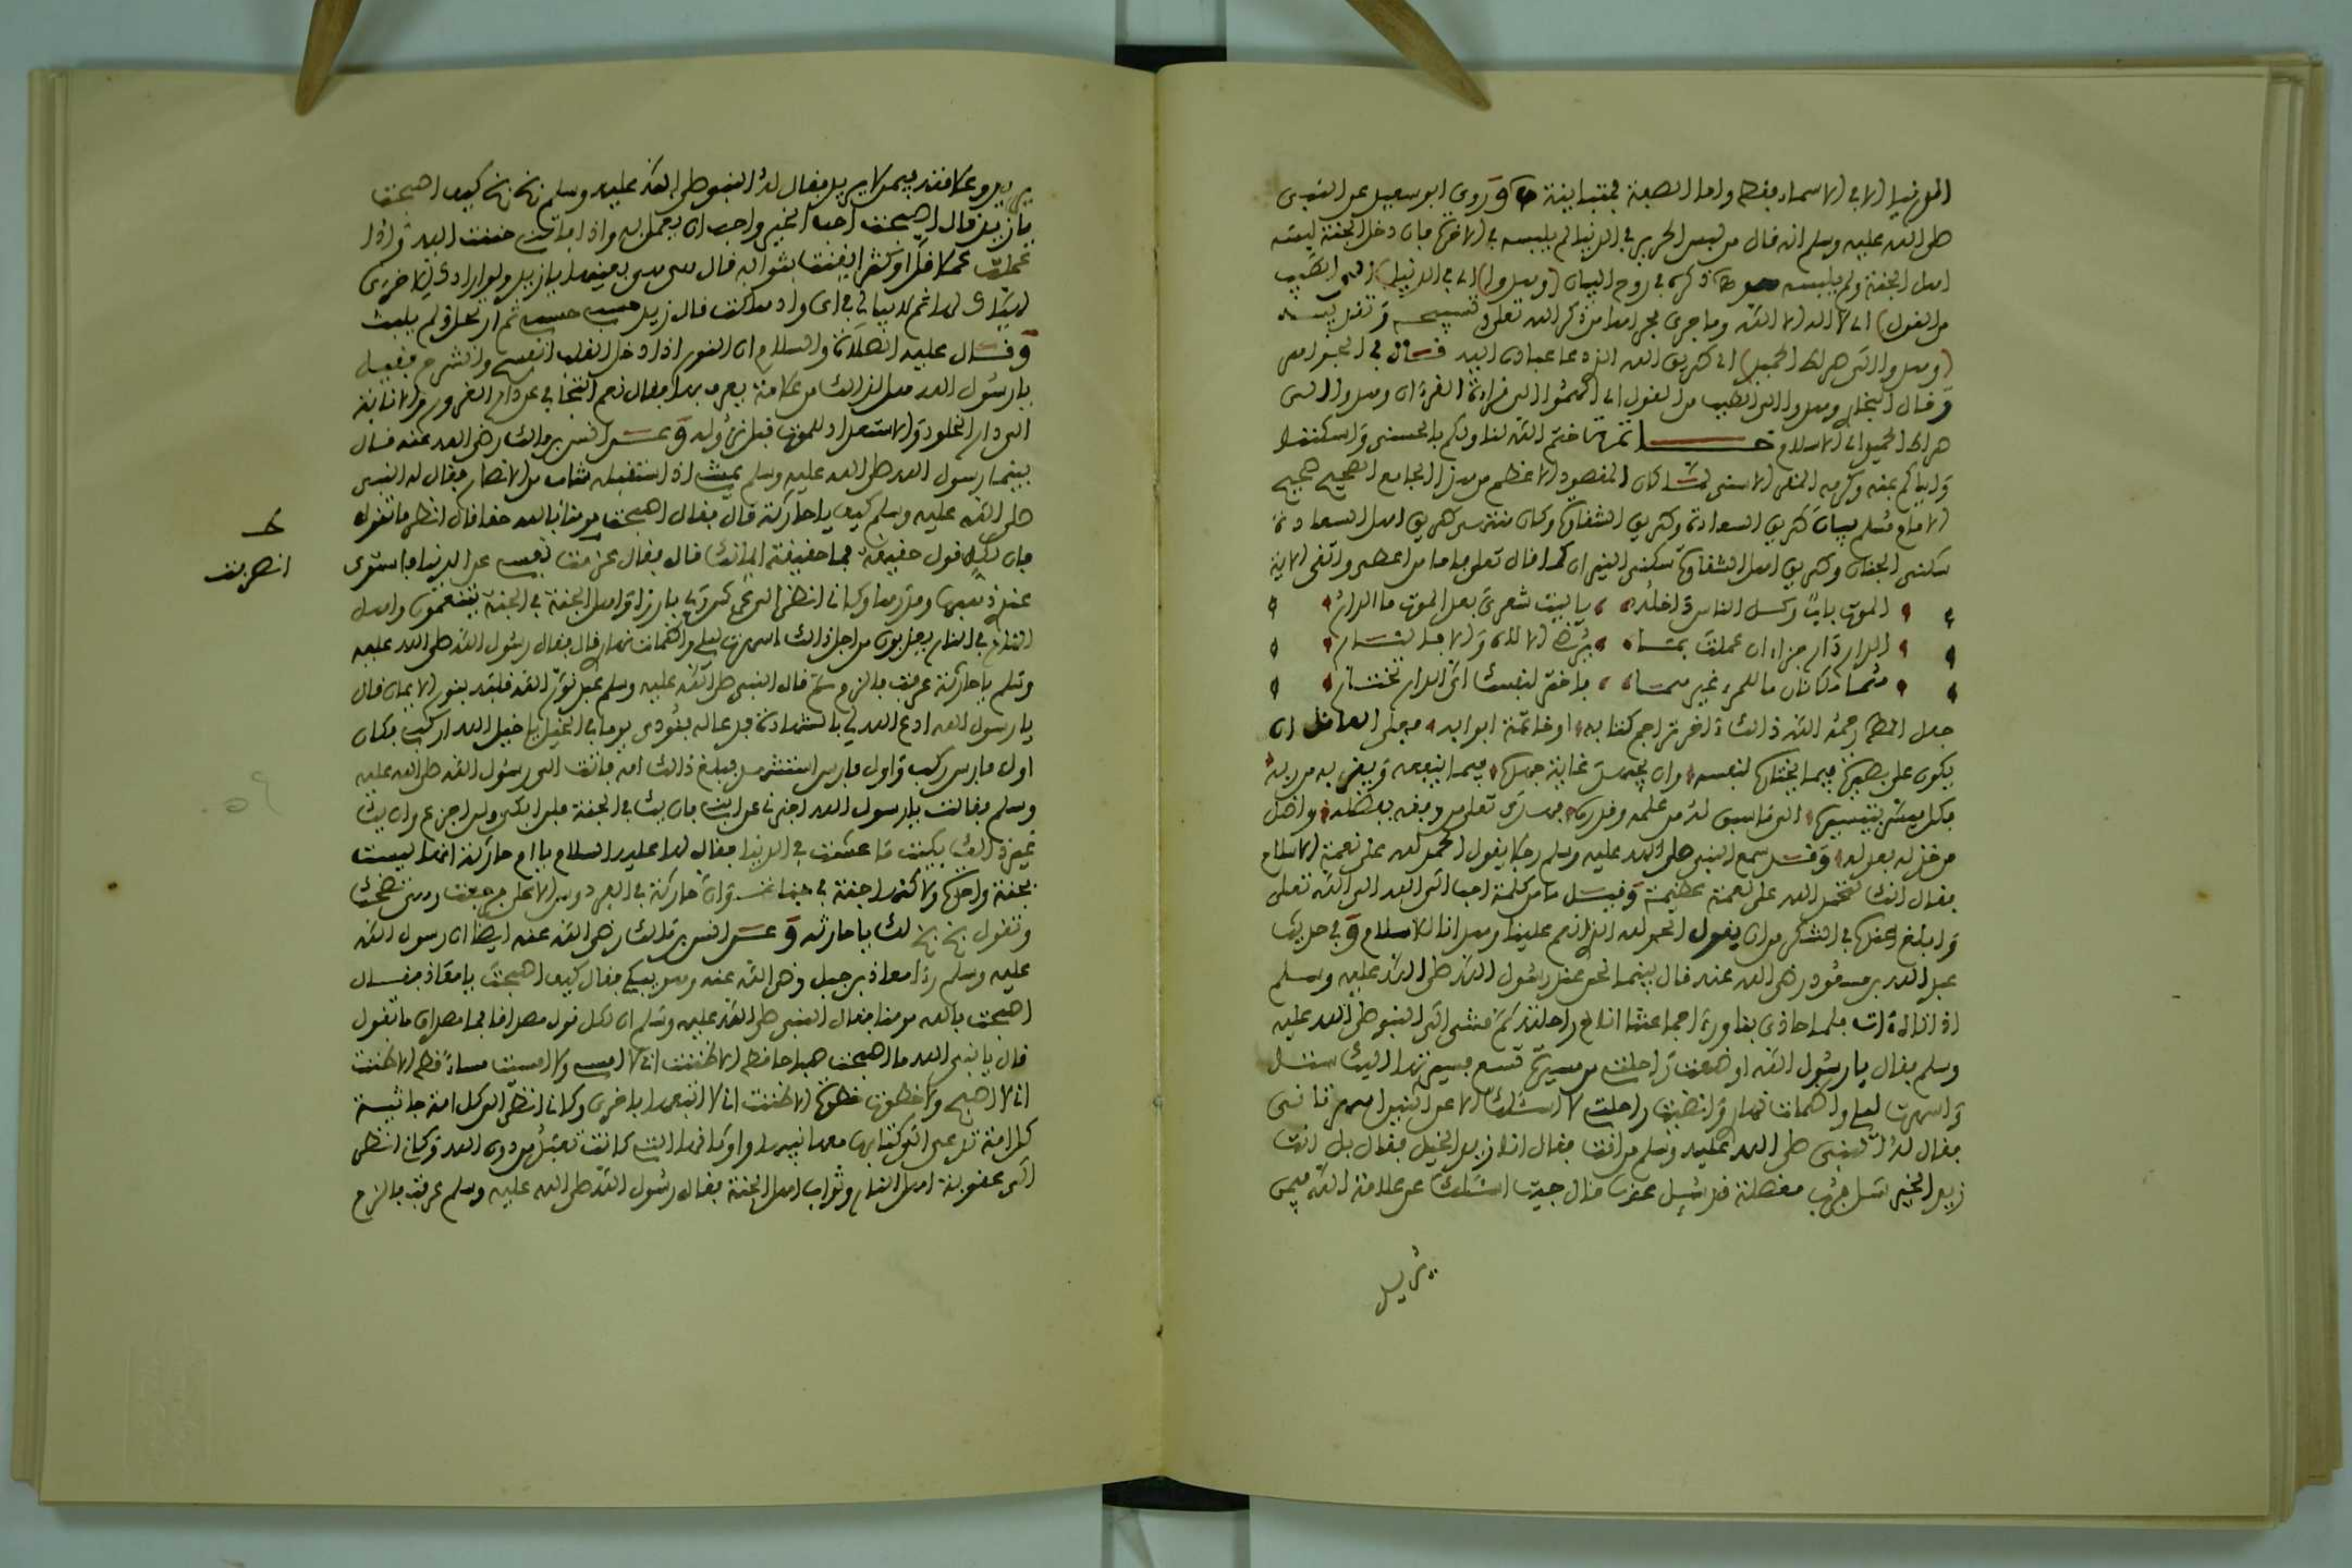 الدنيا الا في الاسماء فقط واما الصفة فمتباينة وروى ابو سعيد عن النبي
صلى الله عليه وسلم انه قال من لبس الحرير في الدنيا لم يلبسه في الاخرة فان دخل الجنة لبسه
اهل الجنة ولم يلبسه هو ذكره في روح البيان (وهدوا) اي في الدنيا الى الطيب
من القول) اي لا اله الا الله وما جرى مجراها من ذكر الله تعلى وتسبيحه وتقديسه
(وهدوا الى صراط الحميد) اي طريق الله الذي دعا عباده اليه قال في البحر
وقال البخاري وهدوا الى الطيب من القول اي الهموا الى قراءة القرءان وهدوا الى
صراط الحميد اي الاسلام خاتمة ختم الله لنا ولكم بالحسنى واسكننا
واياكم بمنه وكرمه المقر الاسنى لما كان المقصود الاعظم من هذا الجامع الصحيح صحيح
الامام مسلم بيان طريق السعادة وطريق الشقاوة وكان منتهى طريق اهل السعادة
سكنى الجنان وطريق اهل الشقاوة سكنى النيران كما قال تعلى فاما من اعطى واتقى الاية
الموت باب وكل الناس داخله يا ليت شعري بعد الموت ما الدار
الدار دار جزاء ان عملت بما يرضي الاله والا فالنار
هما محلان ما للمرء غيرهما فاختر لنفسك اي الدار تختار
جعل المص رحمه الله ذلك اخر تراجم كتابه او خاتمة ابوابه فعلى العاقل ان
يكون على بصيرة فيما يختاره لنفسه وان يجهد غاية جهده فيما ينفعه ويقربه من ربه
فكل ميسر بتيسيره الى ما سبق له من علمه وقدره فمن اراد تعلى وفقه بفضله واضل
من خذله بعدله وقد سمع النبي صلى الله عليه وسلم رجلا يقول الحمد لله على نعمة الاسلام
فقال انك لتحمد الله على نعمة عظيمة وقيل ما من كلمة احب الى الله الى الله تعلى
وابلغ عنده في الشكر من ان يقول الحمد لله الذي انعم علينا وهدانا للاسلام وفي حديث
عبد الله بن مسعود رضي الله عنه قال بينما نحن عند رسول الله صلى الله عليه وسلم
اذ اتاه ءات فلما حاذى بنا ورءا جماعتنا اناخ راحلته ثم مشى الى النبي صلى الله عليه
وسلم فقال يا رسول الله اوضعت راحلتي من مسيرة تسع فسيرتها اليك ستا
واسهرت ليلي واظمات نهاري وانضيت راحلتي لا سالك الا عن اثنين اسهرتاني
فقال له النبي صلى الله عليه وسلم من انت فقال انا زيد الخيل فقال بل انت
زيد الخير سل فرب معضلة قد سئل عنها قال جيت اسئلك عن علامة الله فيمن
يريد
يريد وعلامته فيمن لا يريد فقال له النبي صلى الله عليه وسلم بخ بخ كيف اصبحت
يا زيد قال اصبحت احب الخير واحب ان يعمل به واذا فاتني حننت اليه واذا
عملت عملا قل او كثر ايقنت بثوابه قال هي هي بعينها يا زيد ولو ارادك للاخرى
لهيأك لها ثم لا يبالي في اي واد هلكت قال زيد حسبي حسبي ثم ارتحل ولم يلبث
وقال عليه الصلاة والسلام ان النور اذا دخل القلب انفسح وانشرح فقيل
يا رسول الله هل لذلك من علامة يعرف بها فقال نعم التجافي عن دار الغرور والانابة
الى دار الخلود والاستعداد للموت قبل نزوله وعن انس بن مالك رضي الله عنه قال
بينما رسول الله صلى الله عليه وسلم يمشي اذ استقبله شاب من الانصار فقال له النبي
صلى الله عليه وسلم كيف يا حارثة قال فقال اصبحت مومنا بالله حقا قال انظر ما تقول
فان لكل قول حقيقة فما حقيقة ايمانك قال فقال عزفت نفسي عن الدنيا فاستوى
ط
انصرفت
عندي ذهبها ومدرها وكاني انظر الى عرش ربي بارزا واهل الجنة في الجنة يتنعمون واهل
النار في النار يعذبون من اجل ذلك اسهرت ليلي واظمات نهاري قال فقال رسول الله صلى الله عليه
وسلم يا حارثة عرفت فالزم ثم قال النبي صلى الله عليه وسلم عبد نور الله قلبه بنور الايمان قال
يا رسول الله ادع الله لي بالشهادة فدعا له فنودي يوما في الخيل يا خيل الله اركبي فكان
اول فارس ركب واول فارس استشهد فبلغ ذلك امه فاتت الى رسول الله صلى الله عليه
وسلم فقالت يا رسول الله اخبرني عن ابني فان يك في الجنة فلن ابكي ولن اجزع وان يك
غير ذلك بكيت ما عشت في الدنيا فقال لها عليه السلام يا ام حارثة انها ليست
بجنة واحدة ولاكنها جنة في جنات وان حارثة في الفردوس الاعلى فرجعت وهي تضحك
وتقول بخ بخ لك يا حارثة وعن انس بن مالك رضي الله عنه ايضا ان رسول الله
عليه وسلم رءا معاذ بن جبل رضي الله عنه وهو يبكي فقال كيف اصبحت يا معاذ فقال
اصبحت بالله مومنا فقال النبي صلى الله عليه وسلم ان لكل قول مصداقا فما مصداق ما تقول
قال يا نبي الله ما اصبحت صباحا قط الا ظننت اني لا امسي ولا امسيت مساء قط الا ظننت
اني لا اصبح ولا خطوت خطوة الا ظننت اني لا اتبعها باخرى وكاني انظر الى كل امة جاثية
كل امة تدعى الى كتابها معها نبيها واوثانها التي كانت تعبد من دون الله وكاني انظر
الى عقوبة اهل النار وثواب اهل الجنة فقال رسول الله صلى الله عليه وسلم عرفت فالزم